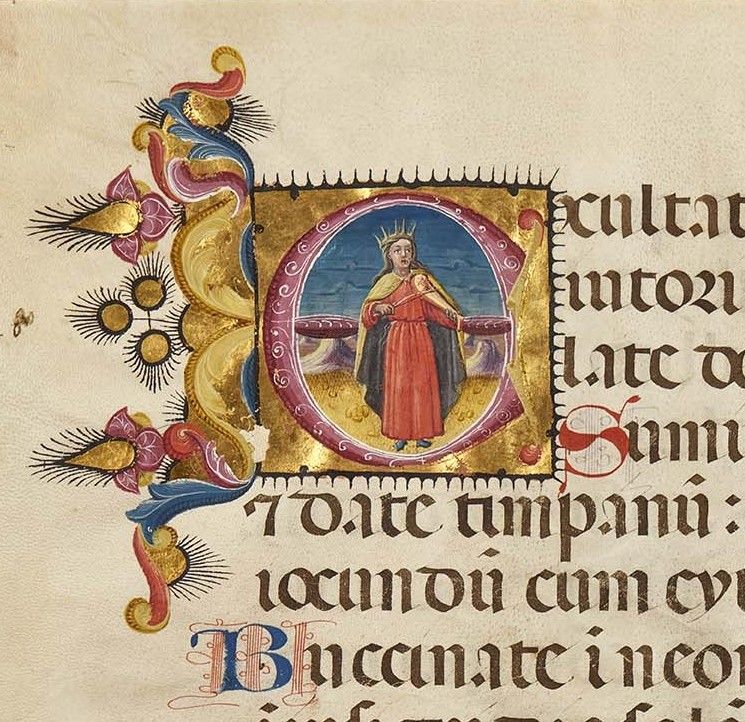 Exultat
iutori
late de
Sumi
⁊ date timpanū :
iocundū cum cy
Buccinate i neo